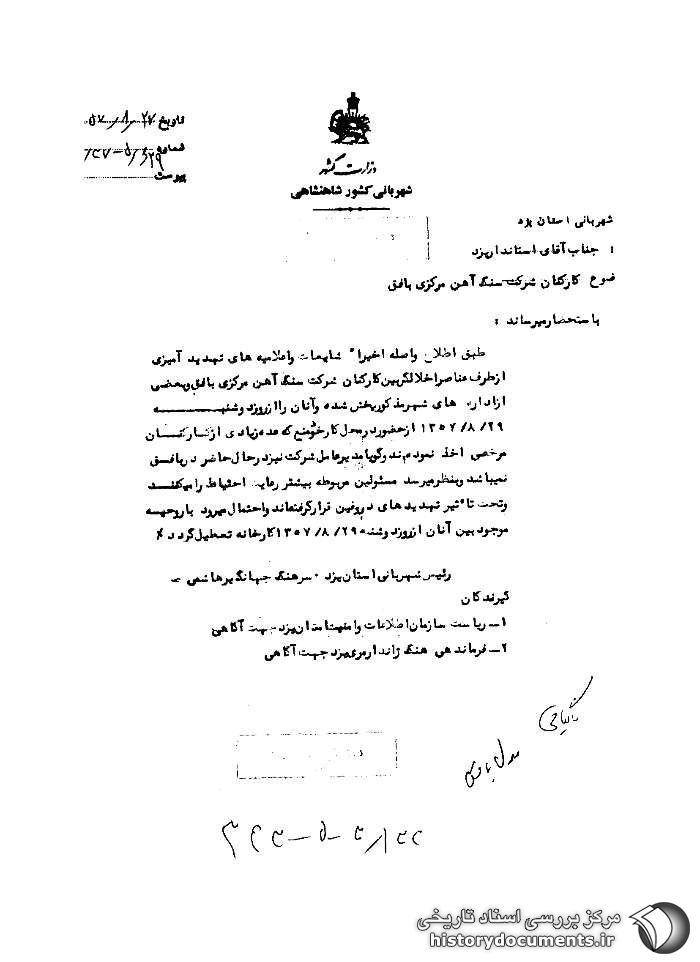 تاریخ ۵۷/۸/۲۷
شماره
پیوست
وزارت کشور
شهربانی کشور شاهنشاهی
شهربانی استان یزد
جناب آقای استاندار یزد
ضوع کارکنان شرکت سنگ آهن مرکزی بافق
باستحضار میرساند :
طبق اطلاع واصله اخیرا" شایعات واعلامیه های تهدید آمیزی
ازطرف عناصر اخلالگر بین کارکنان شرکت سنگ آهن مرکزی بافق وبعضی
ازادارہ های شهر مذکور پخش شده وآنان را ازروزدوشنبه
۱۳۵۷/۸/۲۹ ازحضور درمحل کار خودمنع که عده زیادی ازکارکنان
مرخصی اخذ نموده‌اند وگویا مدیرعامل شرکت نیزدرحال حاضر دربافق
نمیباشد وبنظر میرسد مسئولین مربوطه بیشتر رعایت احتیاط را میکنند
وتحت تاثیر تهدید های دروغین قرار گرفته‌اند واحتمال میرود باروحیه
موجود بین آنان ازروزدوشنبه ۱۳۵۷/۸/۲۹ کارخانه تعطیل گردد
رئیس شهربانی استان یزد ۰ سرهنگ جهانگیر هاشمی
گیرندگان
۱ــ ریاست سازمان اطلاعات وامنیت استان یزد جهت آگاهی
۲ــ فرماندهی هنگ ژاندارمری یزد جهت آگاهی
مرکز بررسی اسناد تاریخی
historydocuments.ir